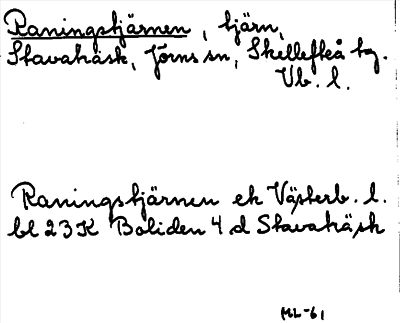 Raningstjärnen, tjärn,
Stavaträsk, Jörns sn, Skellefteå tg.
Vb. l.
Raningstjärnen ek Västerb. l.
bl 23 K Boliden 4 d Stavaträsk
ML-61